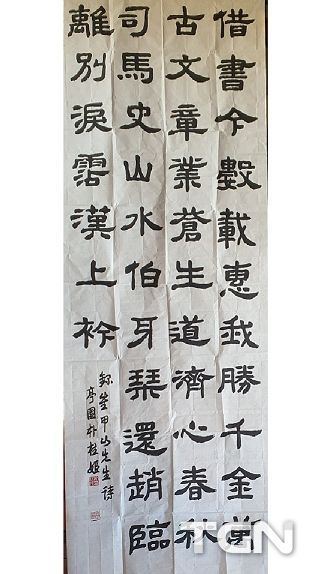 借書今數載惠我勝千金萬
古文章業蒼生道濟心春秋
司馬史山水伯牙琹還趙臨
離別淚霑漢上衿
甲山先生詩
園朴桂姬
TGN